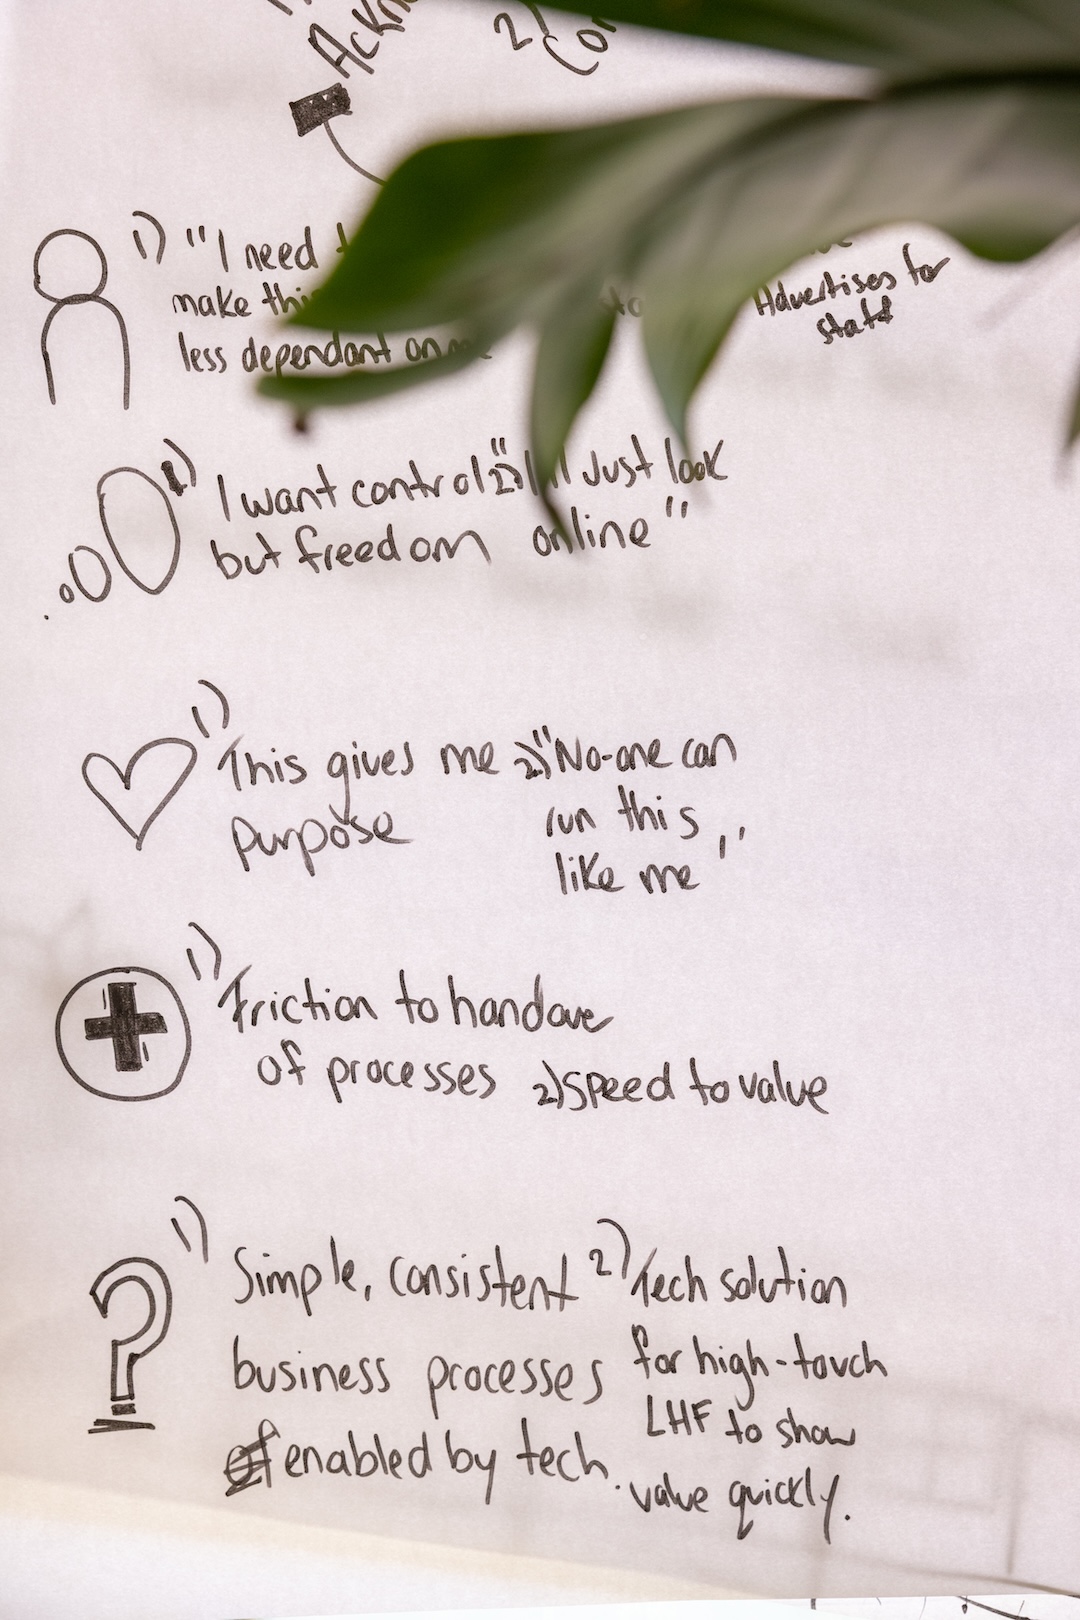 2)
1) "I need
make
Advertises for
staff
less dependant on
1) I want control 2) "I'll Just look
but freedom online"
1) This gives me 2) "No-one can
purpose run this
like me"
1) Friction to handover
of processes 2) Speed to value
1) Simple, consistent 2) Tech solution
business processes for high-touch
LHF to show
enabled by tech. value quickly.